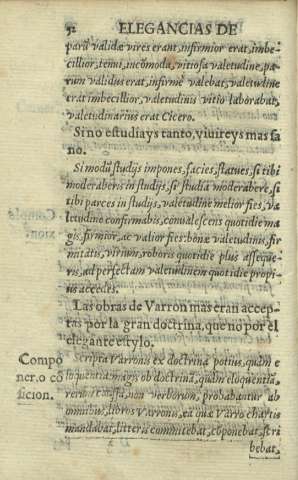 92 ELEGANCIAS DE
parũ validæ vires erant, infirmior erat, imbe-
cillior, tenui, incõmoda, vitiosa valetudine, pa-
rum validus erat, infirmè valebat, valetudine
erat imbecillior, valetudinis vitio laborabat,
valetudinarius erat Cicero.
Si no estudiays tanto, viuireys mas sa
no.
Si modũ studijs impones, facies, statues, si tibi
moderaberis in studijs, si studia moderabere, si
tibi parces in studijs, valetudine melior fies, va
letudine confirmabis, conualesceris quotidie ma
gis, firmior, ac valior fies: bonæ valetudinis, fir
mitatis, virium, roboris quotidie plus asseque-
ris, ad perfectam valetudinem quotidie propi-
us accedes.
Las obras de Varron mas eran accep-
tas por la gran doctrina, que no por el
elegante estylo.
Scripta Varronis ex doctrina potius, quàm e
Compo
loquentia magis ob doctrinã, quàm eloquentiã,
ner. o cõ
rerũ causa, non verborum, probabantur ab
ficion.
omnibus, libros Varronis, ea quæ Varro chartis
mandabat, litteris committebat, cõponebat, scri
bebat,